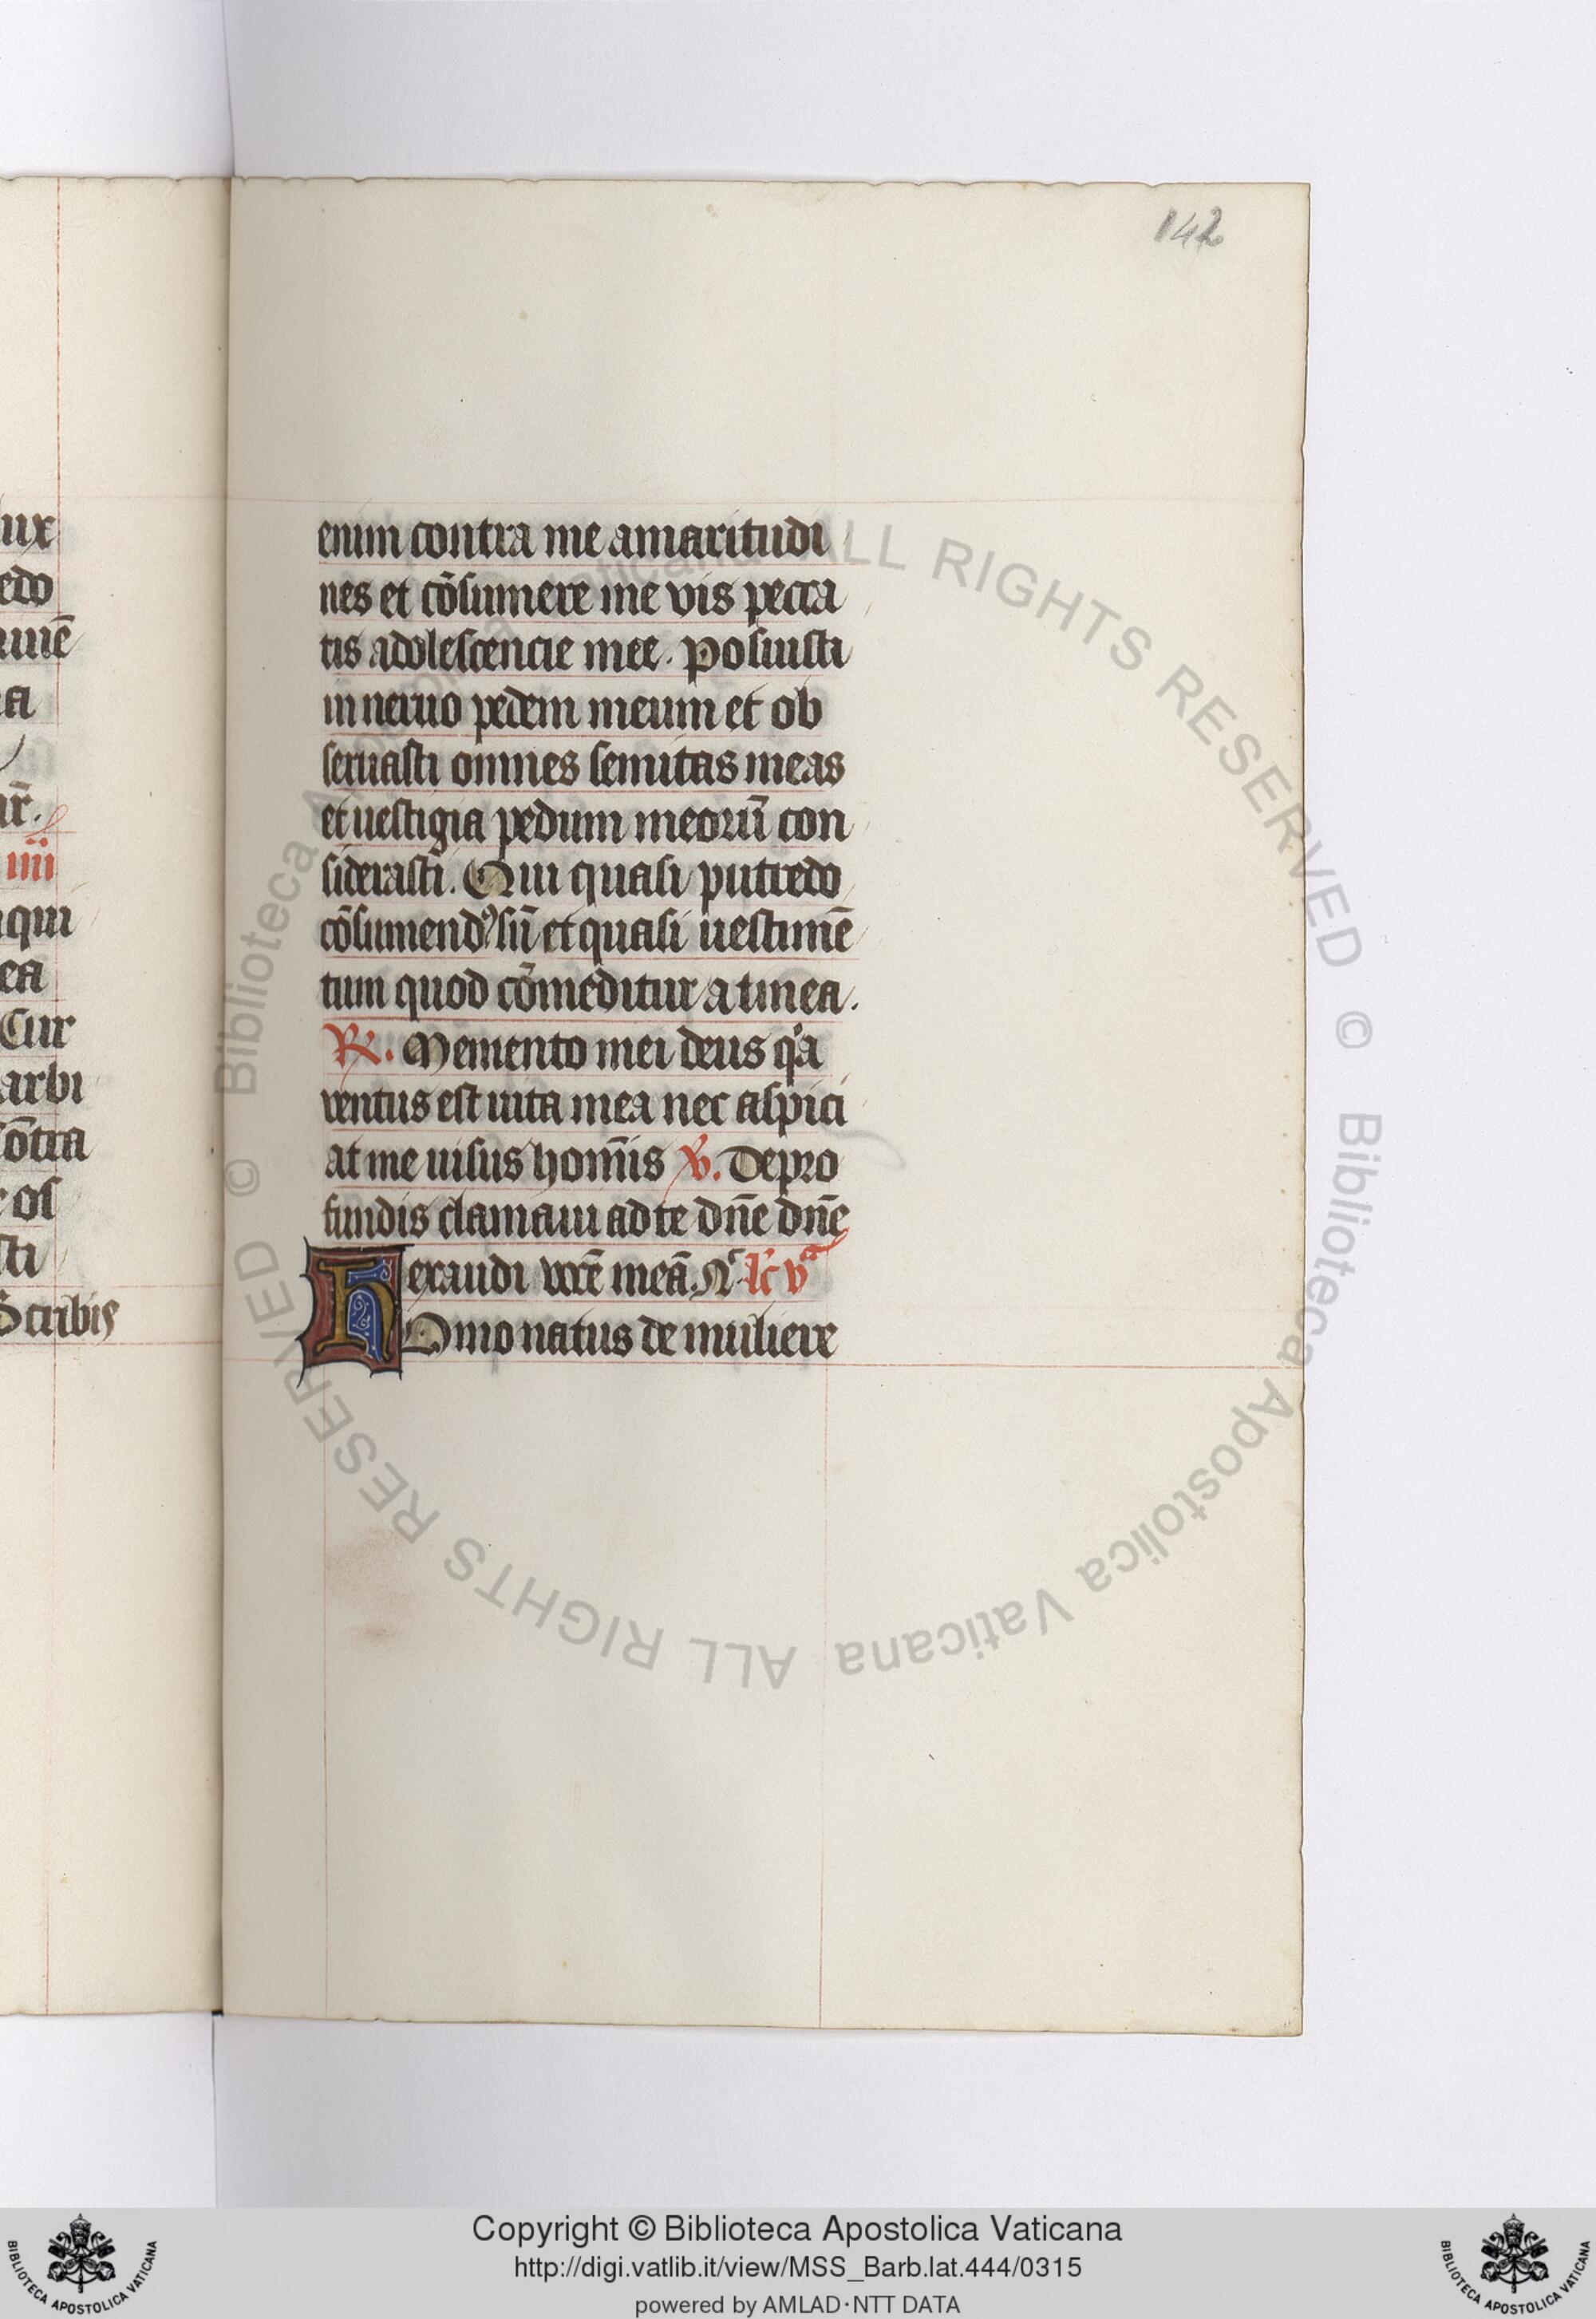 142
ux
edo
imē
a
ur̄.
iiii
qui
ea
Cur
arbi
cōtra
os
sti
Scribis
enim contra me amaritudi
nes et cōsumere me vis pecca
tis adolescencie mee. Posuisti
in neruo pedem meum et ob
seruasti omnes semitas meas
et uestigia pedum meorū con
siderasti. Qui quasi putredo
cōsumendꝰ sū et quasi uestimē
tum quod cōmeditur a tinea.
℟. Memento mei deus qͥa
ventus est uita mea nec aspici
at me uisus homīs ℣. De pro
fundis clamaui ad te dn̄e dn̄e
exaudi vocē meā. Nͨ lc̄ vᵃ
HOmo natus de muliere
© Biblioteca Apostolica Vaticana ALL RIGHTS RESERVED © Biblioteca Apostolica Vaticana ALL RIGHTS RESERVED
BIBLIOTECA APOSTOLICA VATICANA
Copyright © Biblioteca Apostolica Vaticana
http://digi.vatlib.it/view/MSS_Barb.lat.444/0315
powered by AMLAD·NTT DATA
BIBLIOTECA APOSTOLICA VATICANA